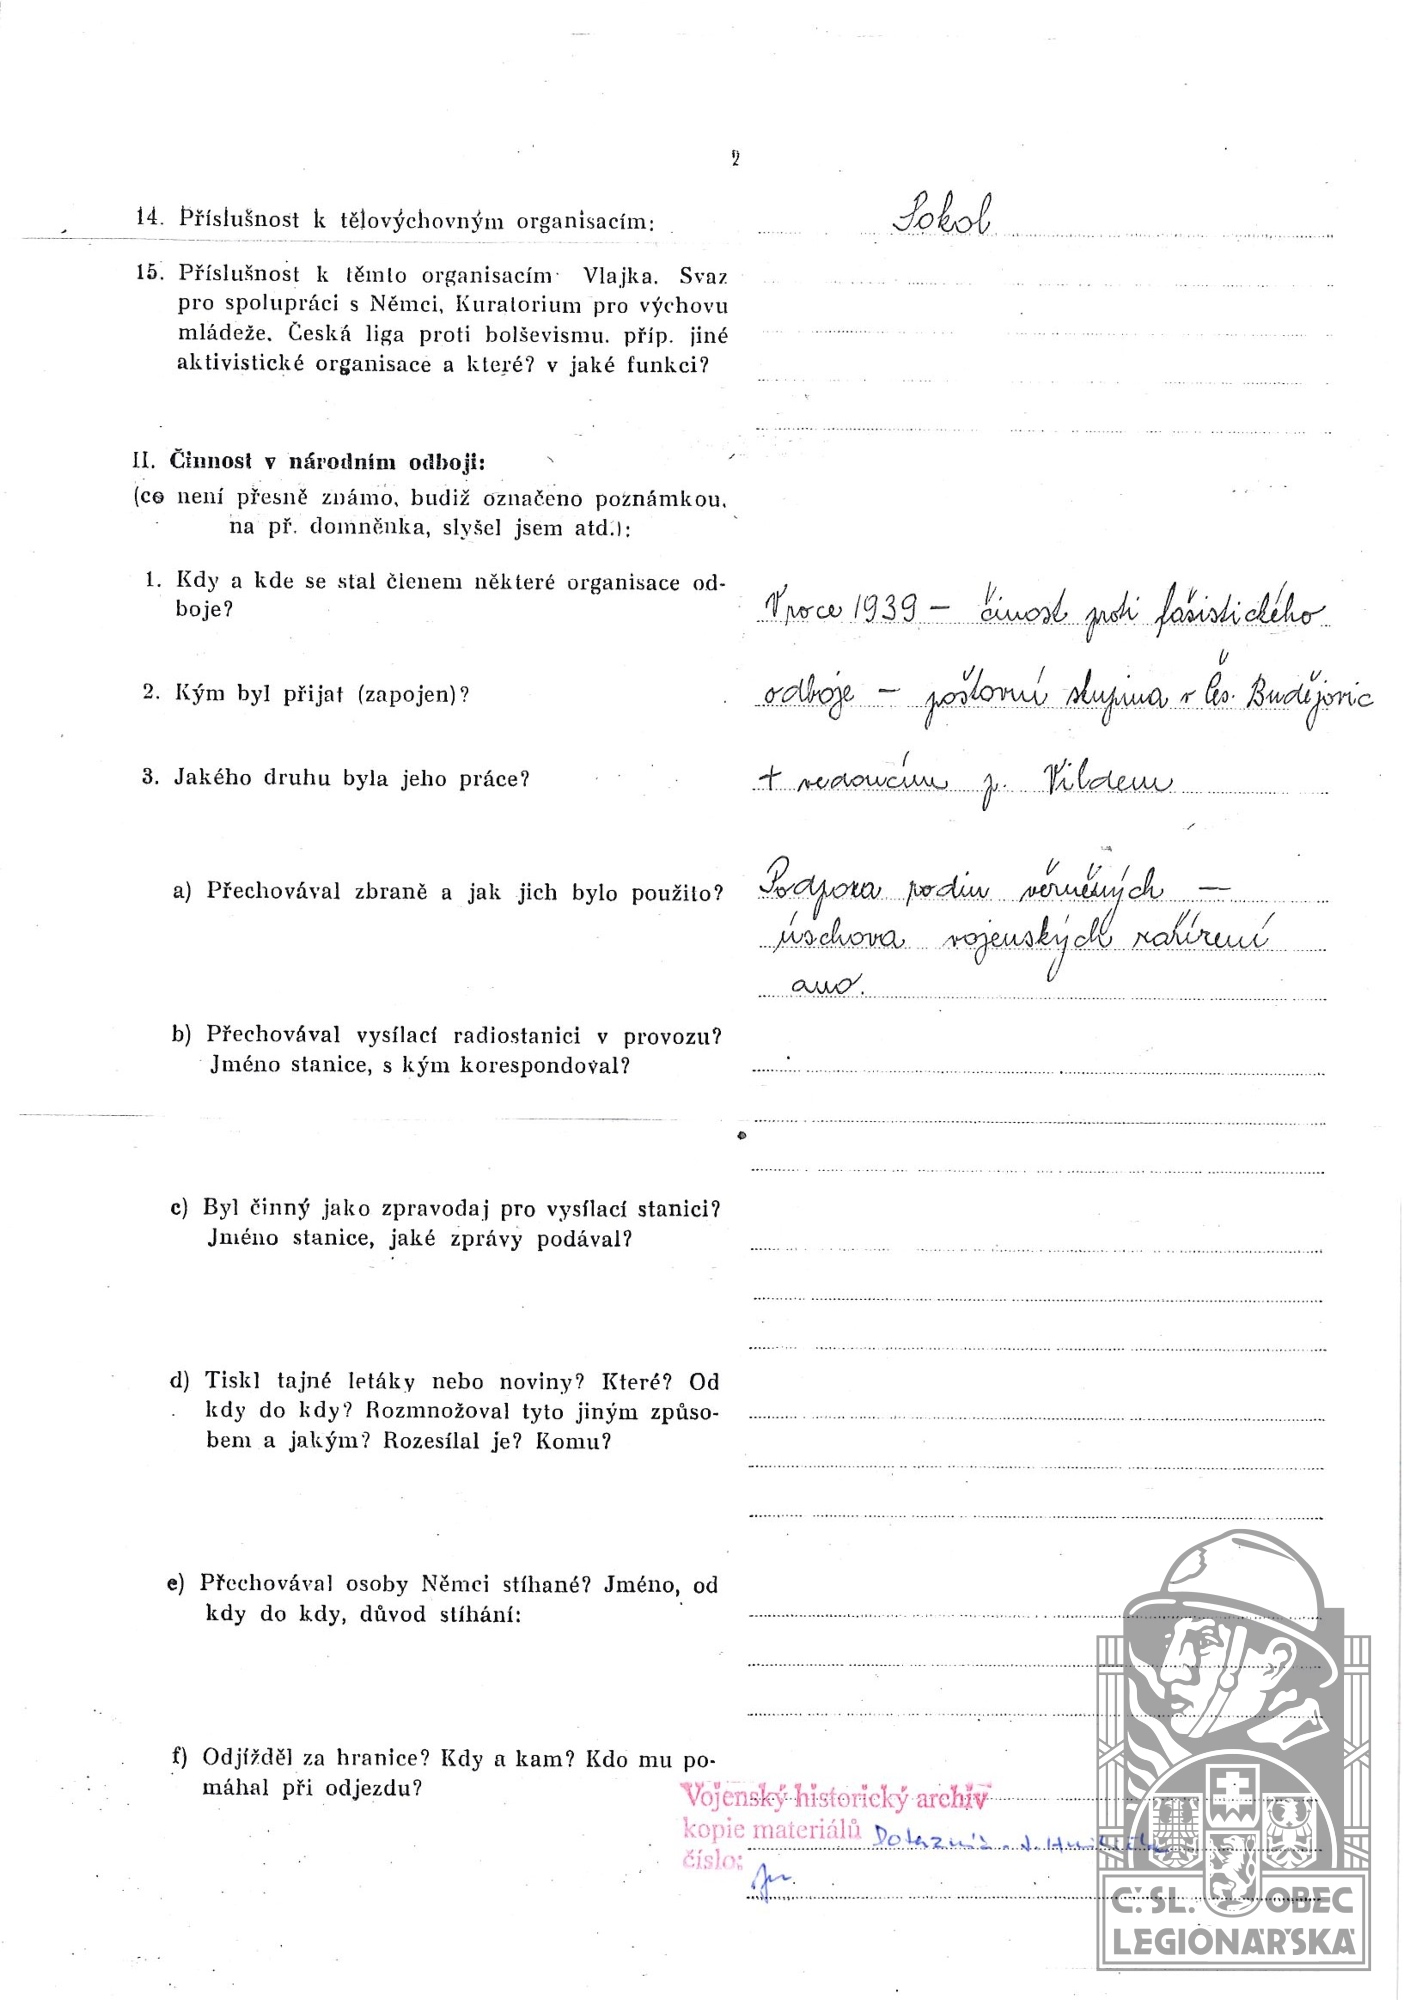 2
14. Příslušnost k tělovýchovným organisacím: Sokol
15. Příslušnost k těmto organisacím Vlajka. Svaz
pro spolupráci s Němci, Kuratorium pro výchovu
mládeže. Česká liga proti bolševismu. příp. jiné
aktivistické organisace a které? v jaké funkci?
II. Činnost v národním odboji:
(co není přesně známo, budiž označeno poznámkou,
na př. domněnka, slyšel jsem atd.):
1. Kdy a kde se stal členem některé organisace od-
boje?
V roce 1939 – činost proti fašistického
2. Kým byl přijat (zapojen)? odboje – poštovní skupina v Čes. Budějovic
3. Jakého druhu byla jeho práce? + vedoucím p. Vildem
a) Přechovával zbraně a jak jich bylo použito? Podpora rodin věrněných –
úschova vojenských zařízení
ano.
b) Přechovával vysílací radiostanici v provozu?
Jméno stanice, s kým korespondoval?
c) Byl činný jako zpravodaj pro vysílací stanici?
Jméno stanice, jaké zprávy podával?
d) Tiskl tajné letáky nebo noviny? Které? Od
kdy do kdy? Rozmnožoval tyto jiným způso-
bem a jakým? Rozesílal je? Komu?
e) Přechovával osoby Němci stíhané? Jméno, od
kdy do kdy, důvod stíhání:
f) Odjížděl za hranice? Kdy a kam? Kdo mu po-
máhal při odjezdu?
Vojenský historický archiv
kopie materiálů Dotazník
číslo:
Č. SL. OBEC
LEGIONÁŘSKÁ